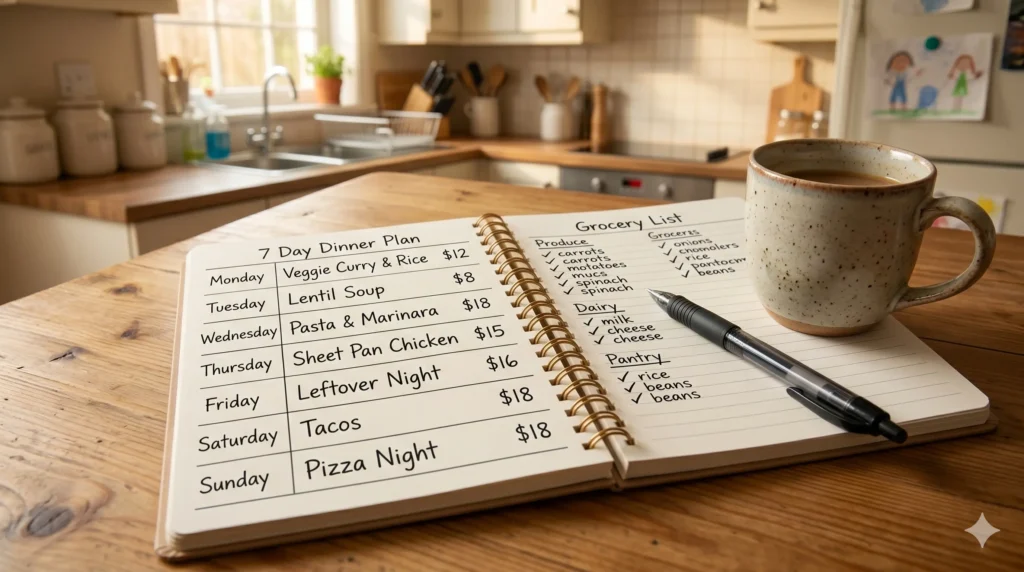 7 Day Dinner Plan
Monday Veggie Curry & Rice $12
Tuesday Lentil Soup $8
Wednesday Pasta & Marinara $18
Thursday Sheet Pan Chicken $15
Friday Leftover Night $16
Saturday Tacos $18
Sunday Pizza Night $18
Grocery List
Produce
✓ carrots
✓ carrots
✓ motatoes
✓ mucs
✓ spinach
✓ spinach
Dairy
✓ milk
✓ cheese
✓ cheese
Pantry
✓ rice
✓ beans
✓ beans
✓ onions
✓ chomolers
✓ rice
✓ beans